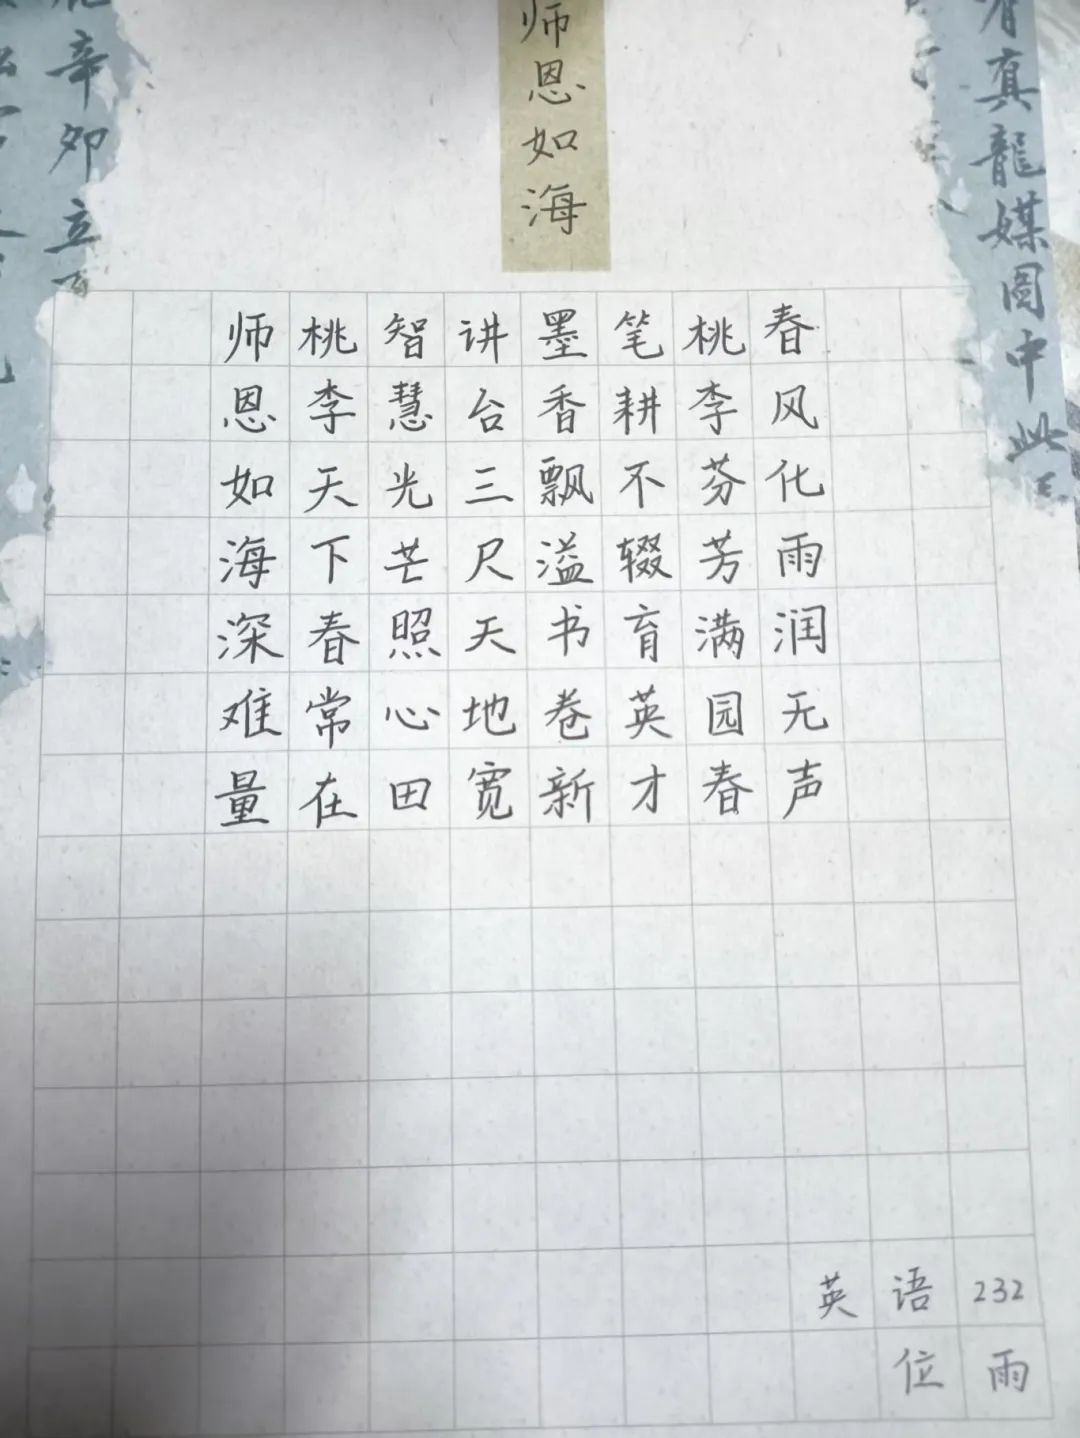 师恩如海
春风化雨润无声
桃李芬芳满园春
笔耕不辍育英才
墨香飘溢书卷新
讲台三尺天地宽
智慧光芒照心田
桃李天下春常在
师恩如海深难量
英语232
位雨
辛卯立
真龍媒圖中此